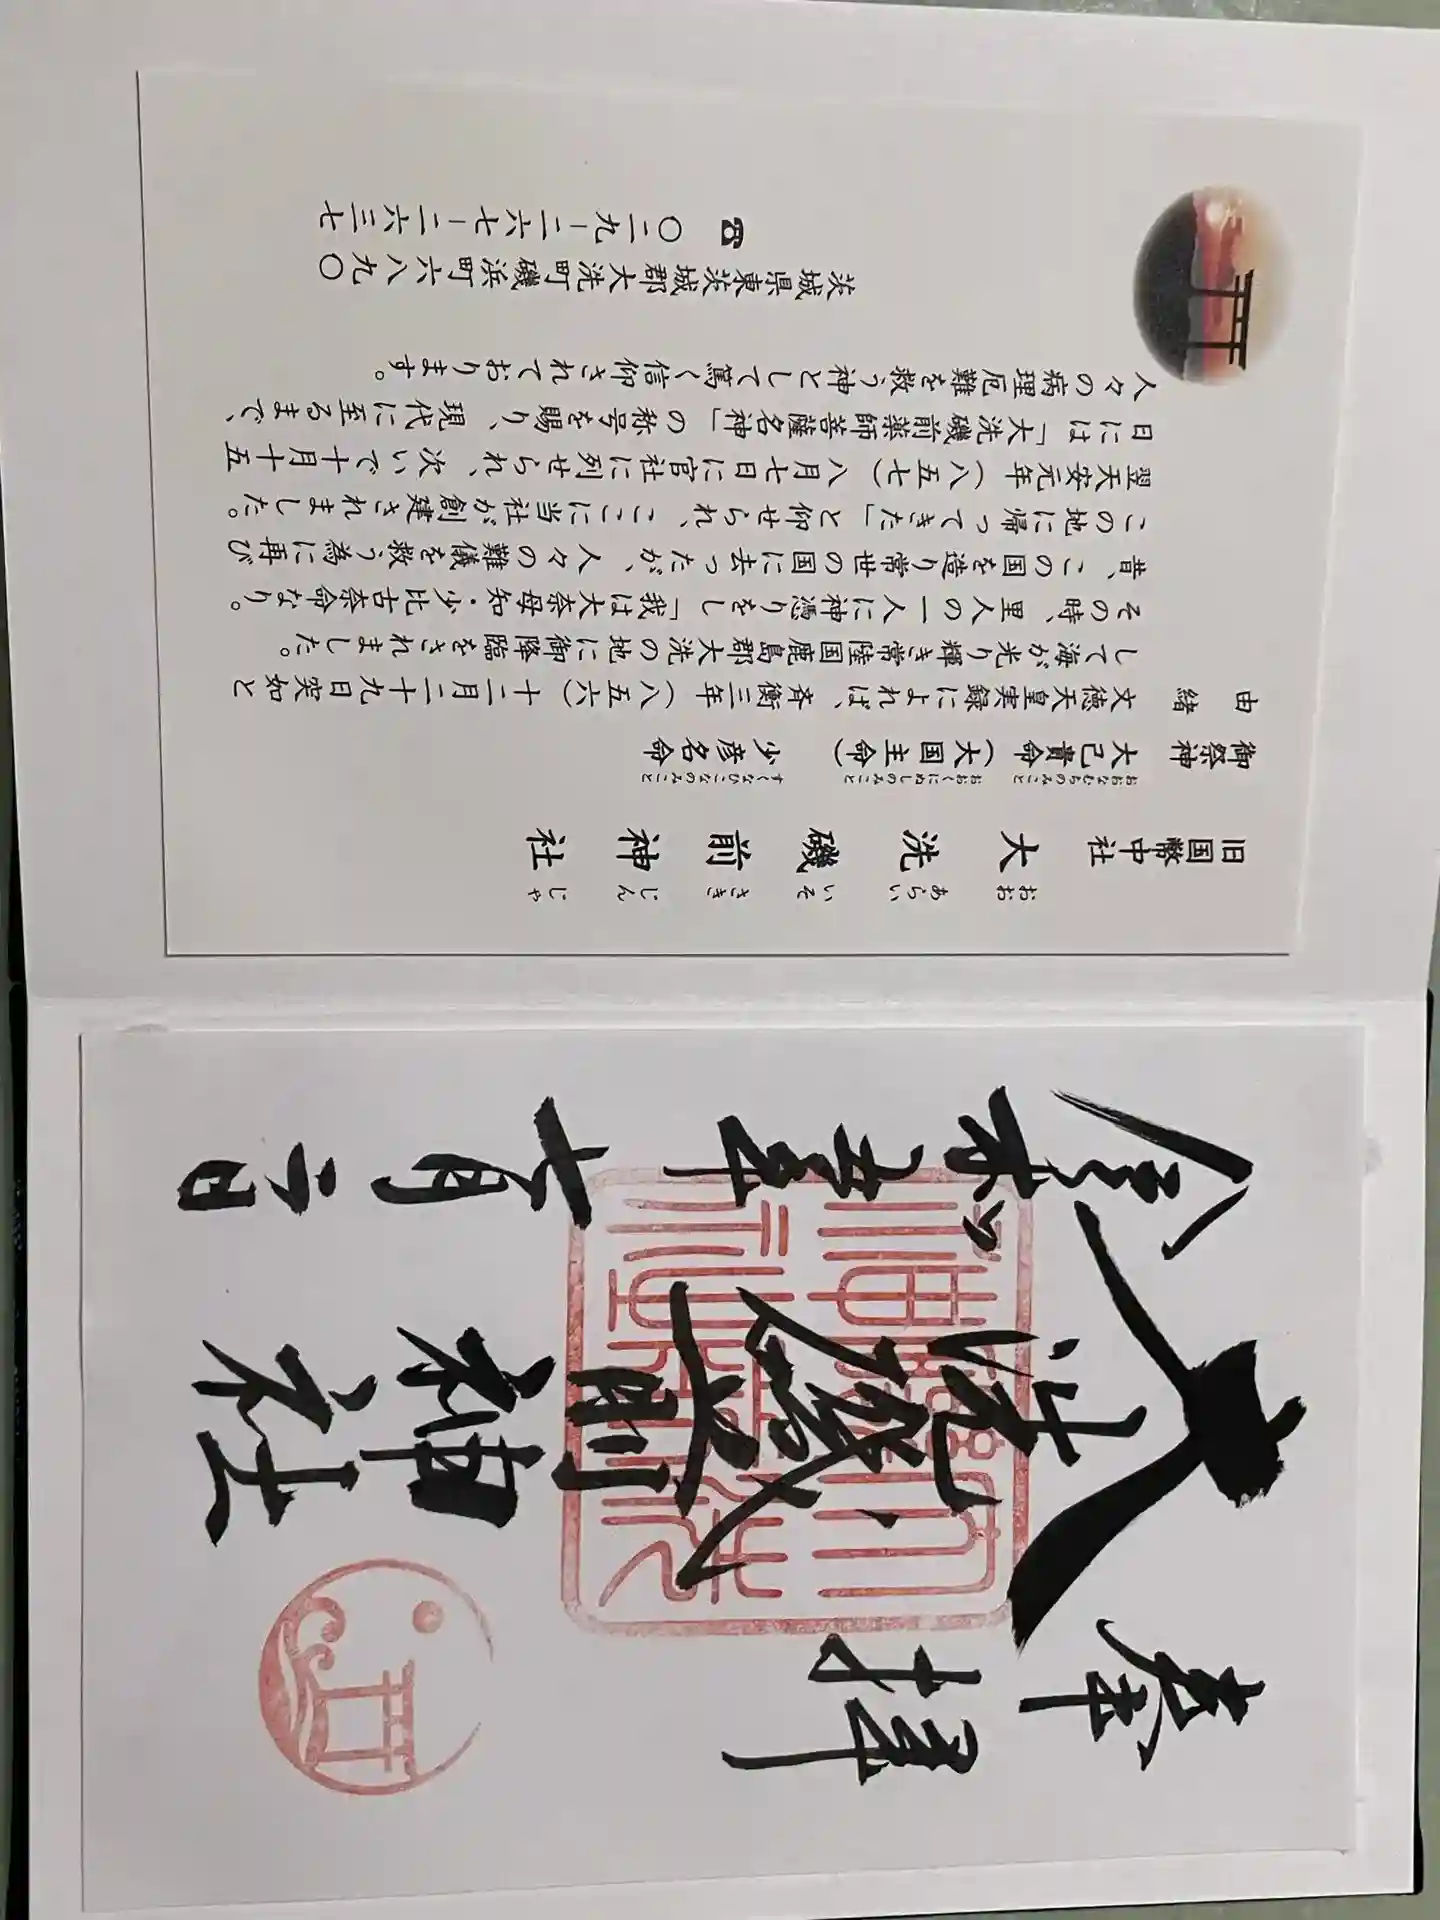 奉拝
大洗磯前神社
令和五年七月二日
旧国幣中社 大洗磯前神社
おおあらいいそさきじんじゃ
御祭神 大己貴命(大国主命) 少彦名命
おおなむちのみこと おおくにぬしのみこと すくなひこなのみこと
由緒 文徳天皇実録によれば、斉衡三年(八五六)十二月二十九日突如と
して海が光り輝き常陸国鹿島郡大洗の地に御降臨をされました。
その時、里人の一人に神憑りをし「我は大奈母知・少比古奈命なり。
昔、この国を造り常世の国に去ったが、人々の難儀を救う為に再び
この地に帰ってきた」と仰せられ、ここに当社が創建されました。
翌天安元年(八五七)八月七日に官社に列せられ、次いで十月十五
日には「大洗磯前薬師菩薩名神」の称号を賜り、現代に至るまで、
人々の病理厄難を救う神として篤く信仰されております。
茨城県東茨城郡大洗町磯浜町六八九〇
☎ 〇二九-二六七-二六三七